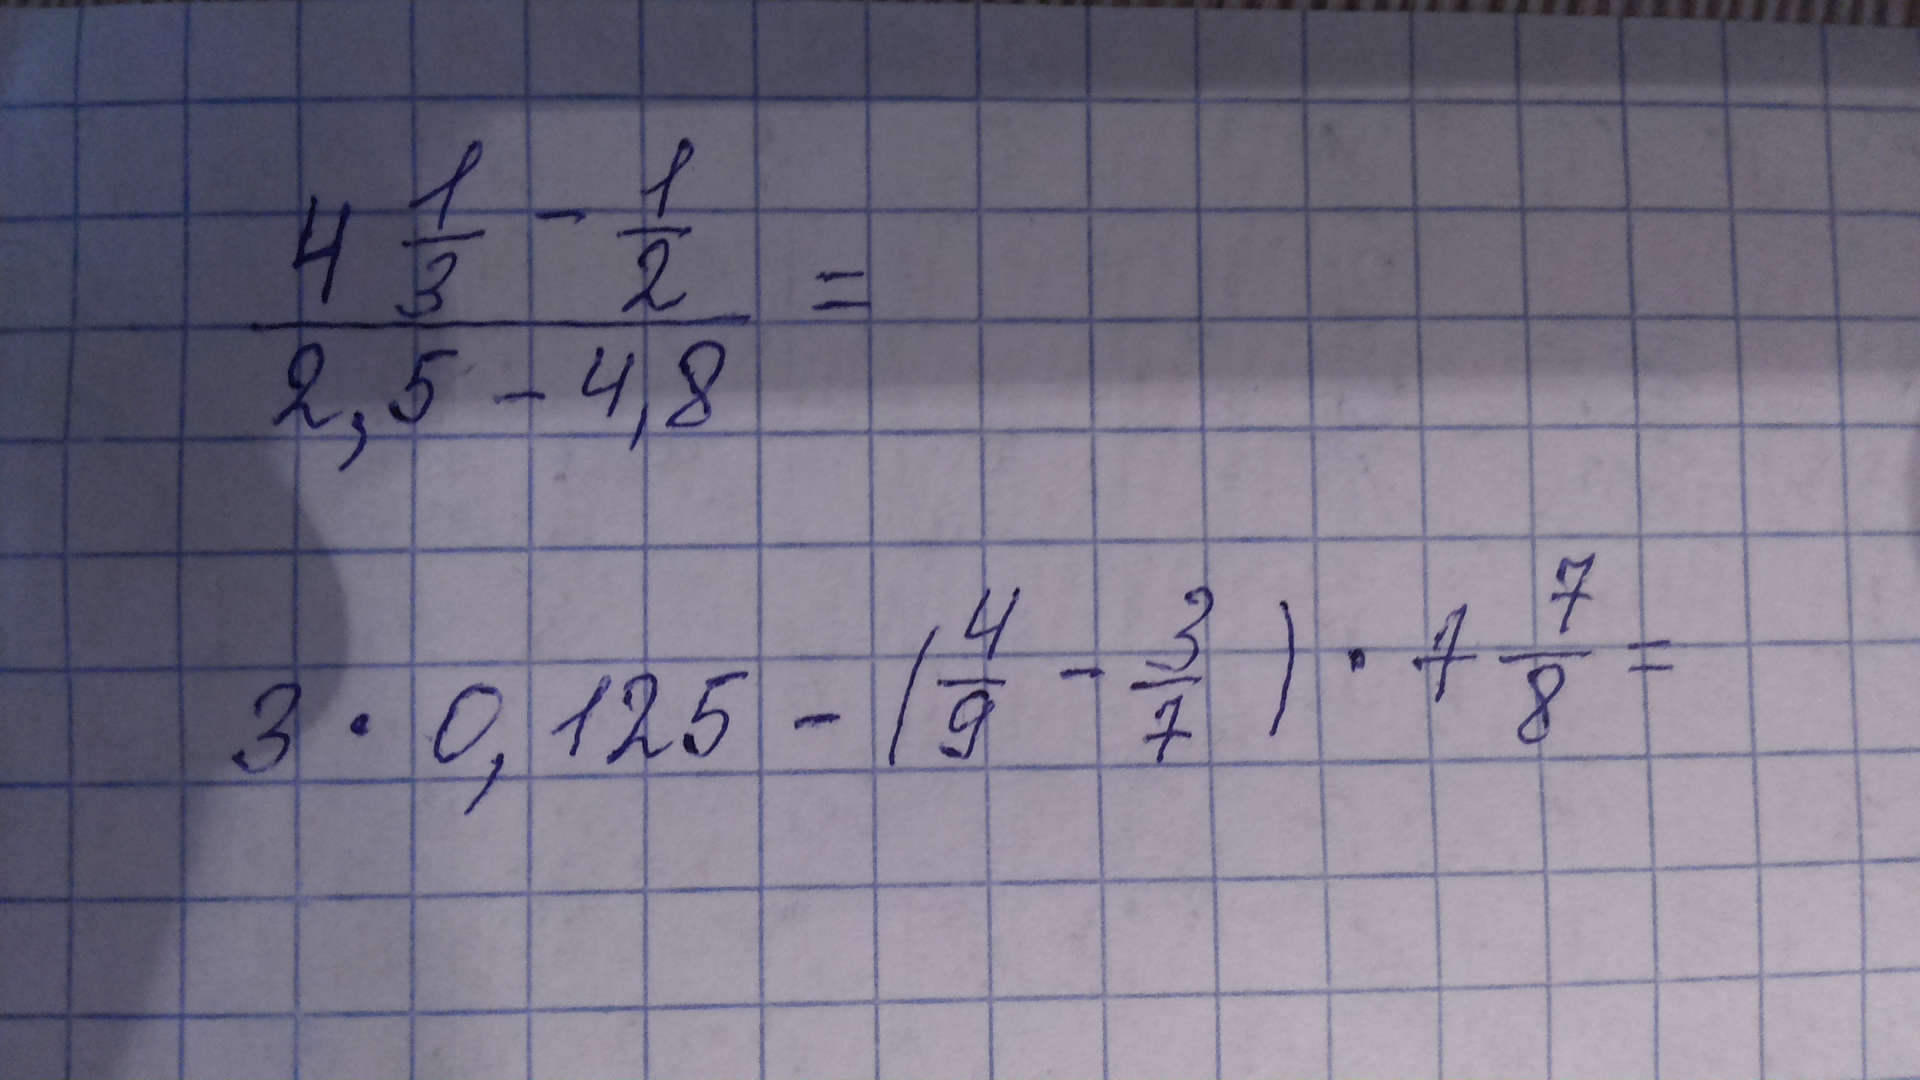 4 1/3 - 1/2
2,5 - 4,8 =
3 · 0,125 - (4/9 - 3/7) · 7/8 =